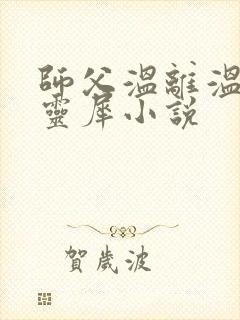 師父溫離溫
靈犀小說
賀歲波